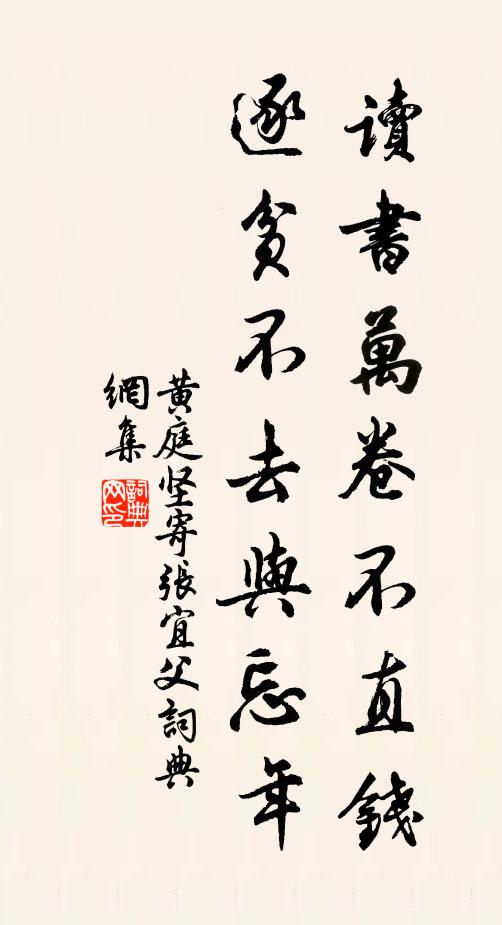 讀書萬卷不直錢
逐貧不去與忘年
黄庭坚寄張宜父詞典
網集
詞典
网印